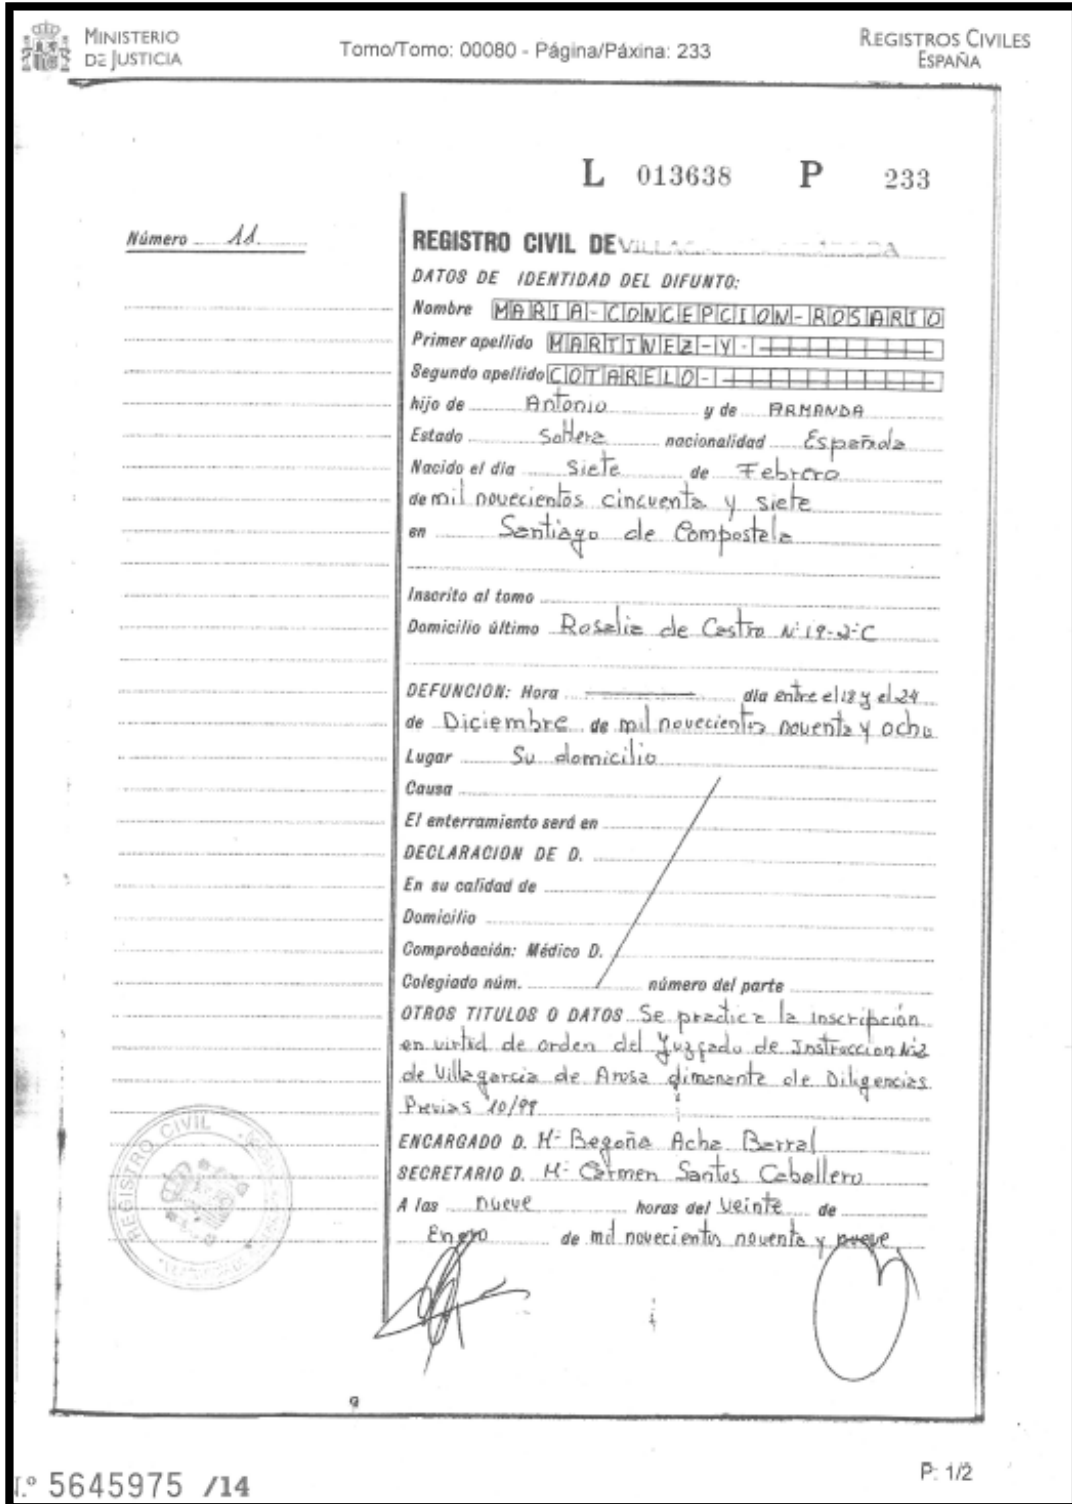 MINISTERIO
DE JUSTICIA
Tomo/Tomo: 00080 - Página/Páxina: 233
REGISTROS CIVILES
ESPAÑA
L 013638 P 233
Número 11.
REGISTRO CIVIL DE
DATOS DE IDENTIDAD DEL DIFUNTO:
Nombre MARIA-CONCEPCION-ROSARIO
Primer apellido MARTINEZ-Y-
Segundo apellido COTARELO-
hijo de Antonio y de ARMANDA
Estado Soltera nacionalidad Española
Nacido el día Siete de Febrero
de mil novecientos cincuenta y siete
en Santiago de Compostela
Inscrito al tomo
Domicilio último Rosalia de Castro Nº 19-2ºC
DEFUNCION: Hora día entre el 18 y el 24
de Diciembre de mil novecientos noventa y ocho
Lugar Su domicilio
Causa
El enterramiento será en
DECLARACION DE D.
En su calidad de
Domicilio
Comprobación: Médico D.
Colegiado núm. número del parte
OTROS TITULOS O DATOS Se practica la inscripción
en virtud de orden del Juzgado de Instruccion Nº2
de Villagarcia de Arosa dimanante de Diligencias
Previas 10/99
ENCARGADO D. Mª Begoña Acha Barral
SECRETARIO D. Mª Carmen Santos Caballero
A las nueve horas del veinte de
Enero de mil novecientos noventa y nueve
REGISTRO CIVIL
N.º 5645975 /14
P: 1/2